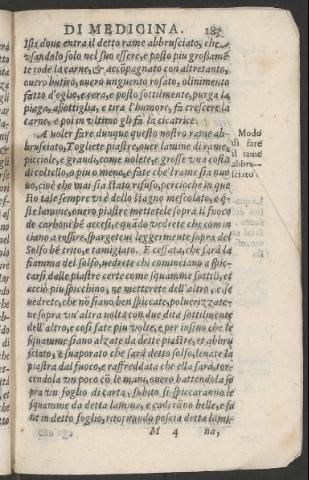 DI MEDICINA. 183
Isis doue entra il detto rame abbrusciato, che
vsandolo solo nel suo essere, e posto piu grossamē
te rode la carne, & accōpagnato con altretanto,
ouero butirò, ouero unguento rosato, olinimento
fatto d'oglio, e cera, e posto sottilmente, purga la
piaga, assottiglia, e tira l'humore, fa crescere la
carne, e poi in vltimo gli fa la cicatrice.
A uoler fare dunque questo nostro rame ab-
brusciato, Togliete piastre, ouer lamine di rame,
picciole, e grande, come uolete, e grosse vna costa
di coltello, o piu o meno, e fate che'l rame sia nuo
uo, cioè che mai sia stato rifuso, percioche in que
sto tale sempre vi è dello stagno mescolato, e q̄-
ste lamine, ouero piastre mettetele sopra il fuoco
de carboni bē accesi, e quādo vedrete che comin
ciano a rossire, spargeteui leggermente sopra del
Solfo bē trito, e tamigiato. E cessata, che sarà la
fiamma del solfo, uedrete chi cominciano a spic-
carsi dalle piastre certe come squamme sottili, et
acciò piu spicchino, ne metterete dell'altro, e se
uedrete, che nō siano ben spiccate, poluerizzate-
ne sopra vn'altra volta con due dita sottilmente
dell'altro, e cosi fate piu volte, e per insino che le
squamme siano alzate da dette piastre, et abbru
sciato, è suaporato che sarà detto solfo, leuate la
piastra dal fuoco, e raffreddata che ella sarà, tor-
cendola vn poco cō le mani, ouero battendola so
pra vn foglio di carta, subito si spiccaranno le
squamme da detta lamina, e caderāno belle, e sa
ne in detto foglio, ritornando poscia detta lami-
M 4 na,
Modo
di fare
il rame
abbru-
sciato